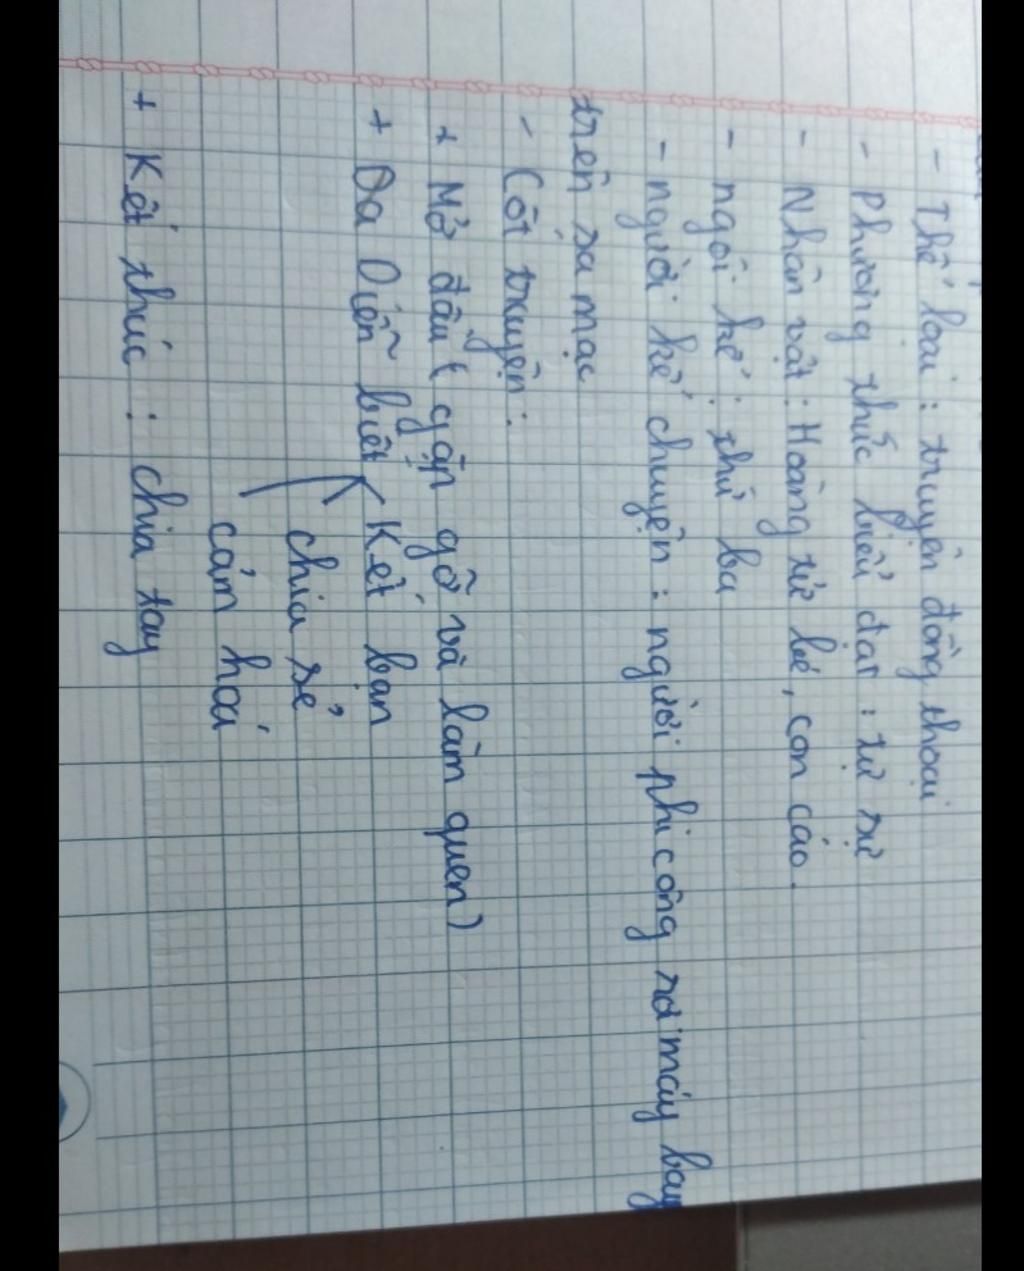 - Thể loại : truyện đồng thoại
- Phương thức biểu đạt : tự sự
- Nhân vật : Hoàng tử bé, con cáo.
- ngôi kể : thứ ba
- người kể chuyện : người phi công rơi máy bay
trên sa mạc
- Cốt truyện :
+ Mở đầu ( gặp gỡ và làm quen)
+ Diễn biến Kết bạn
chia sẻ
cảm hoá
+ Kết thúc : chia tay